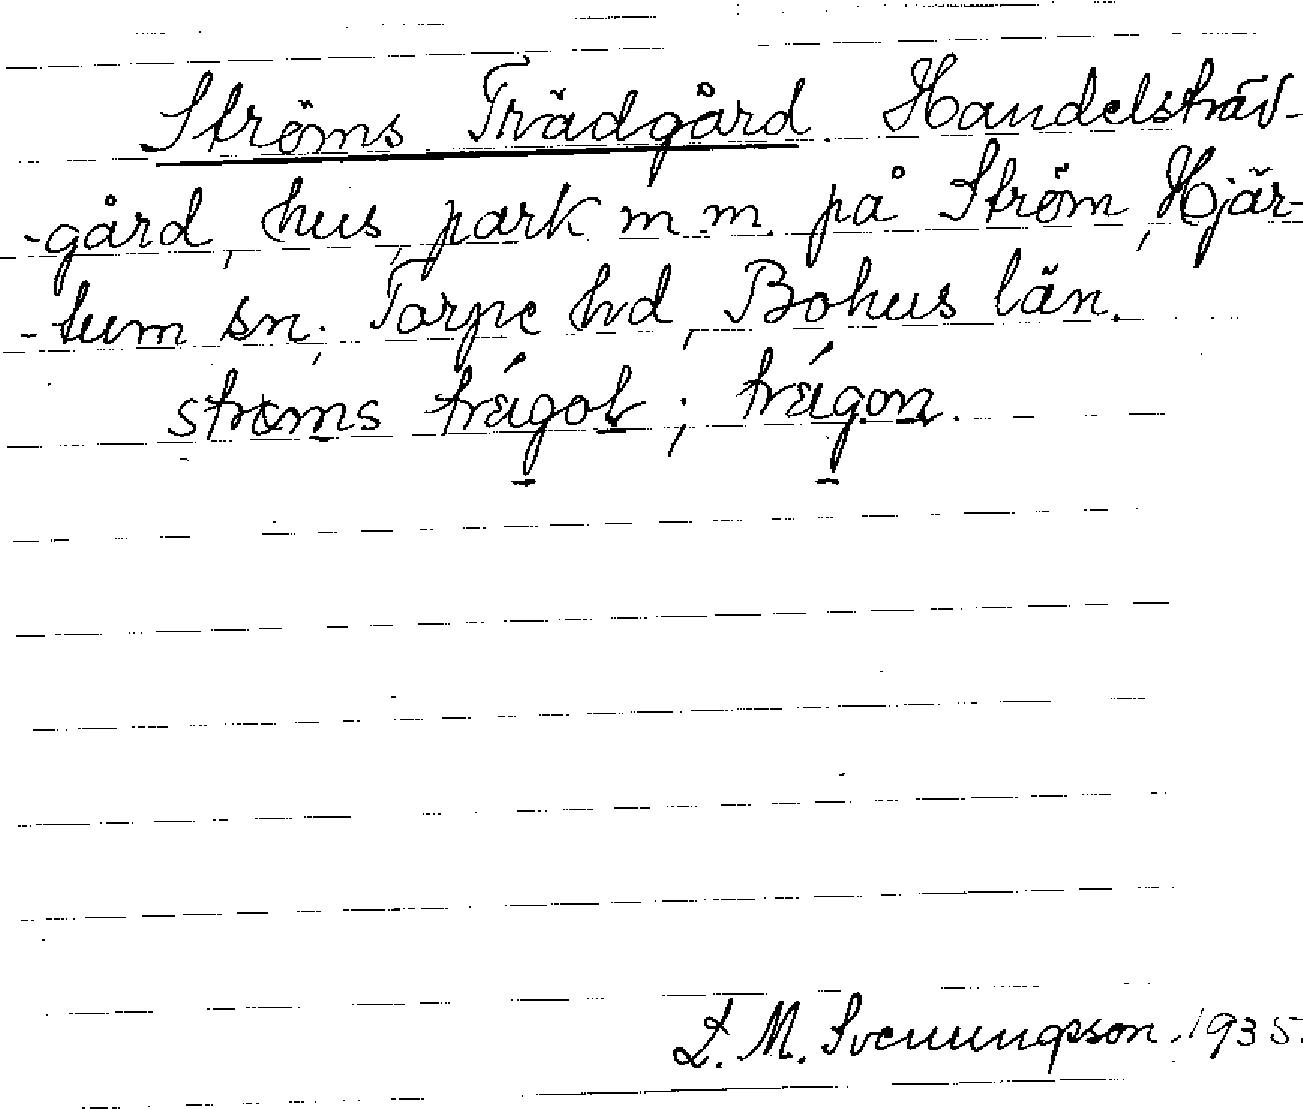 Ströms Trädgård. Handelsträd-
-gård, hus, park m.m. på Ström, Hjär-
-tum sn; Torpe hd, Bohus län.
strøms trǽgoḷ; trǽgon.
L. M. Svenungsson, 1935.